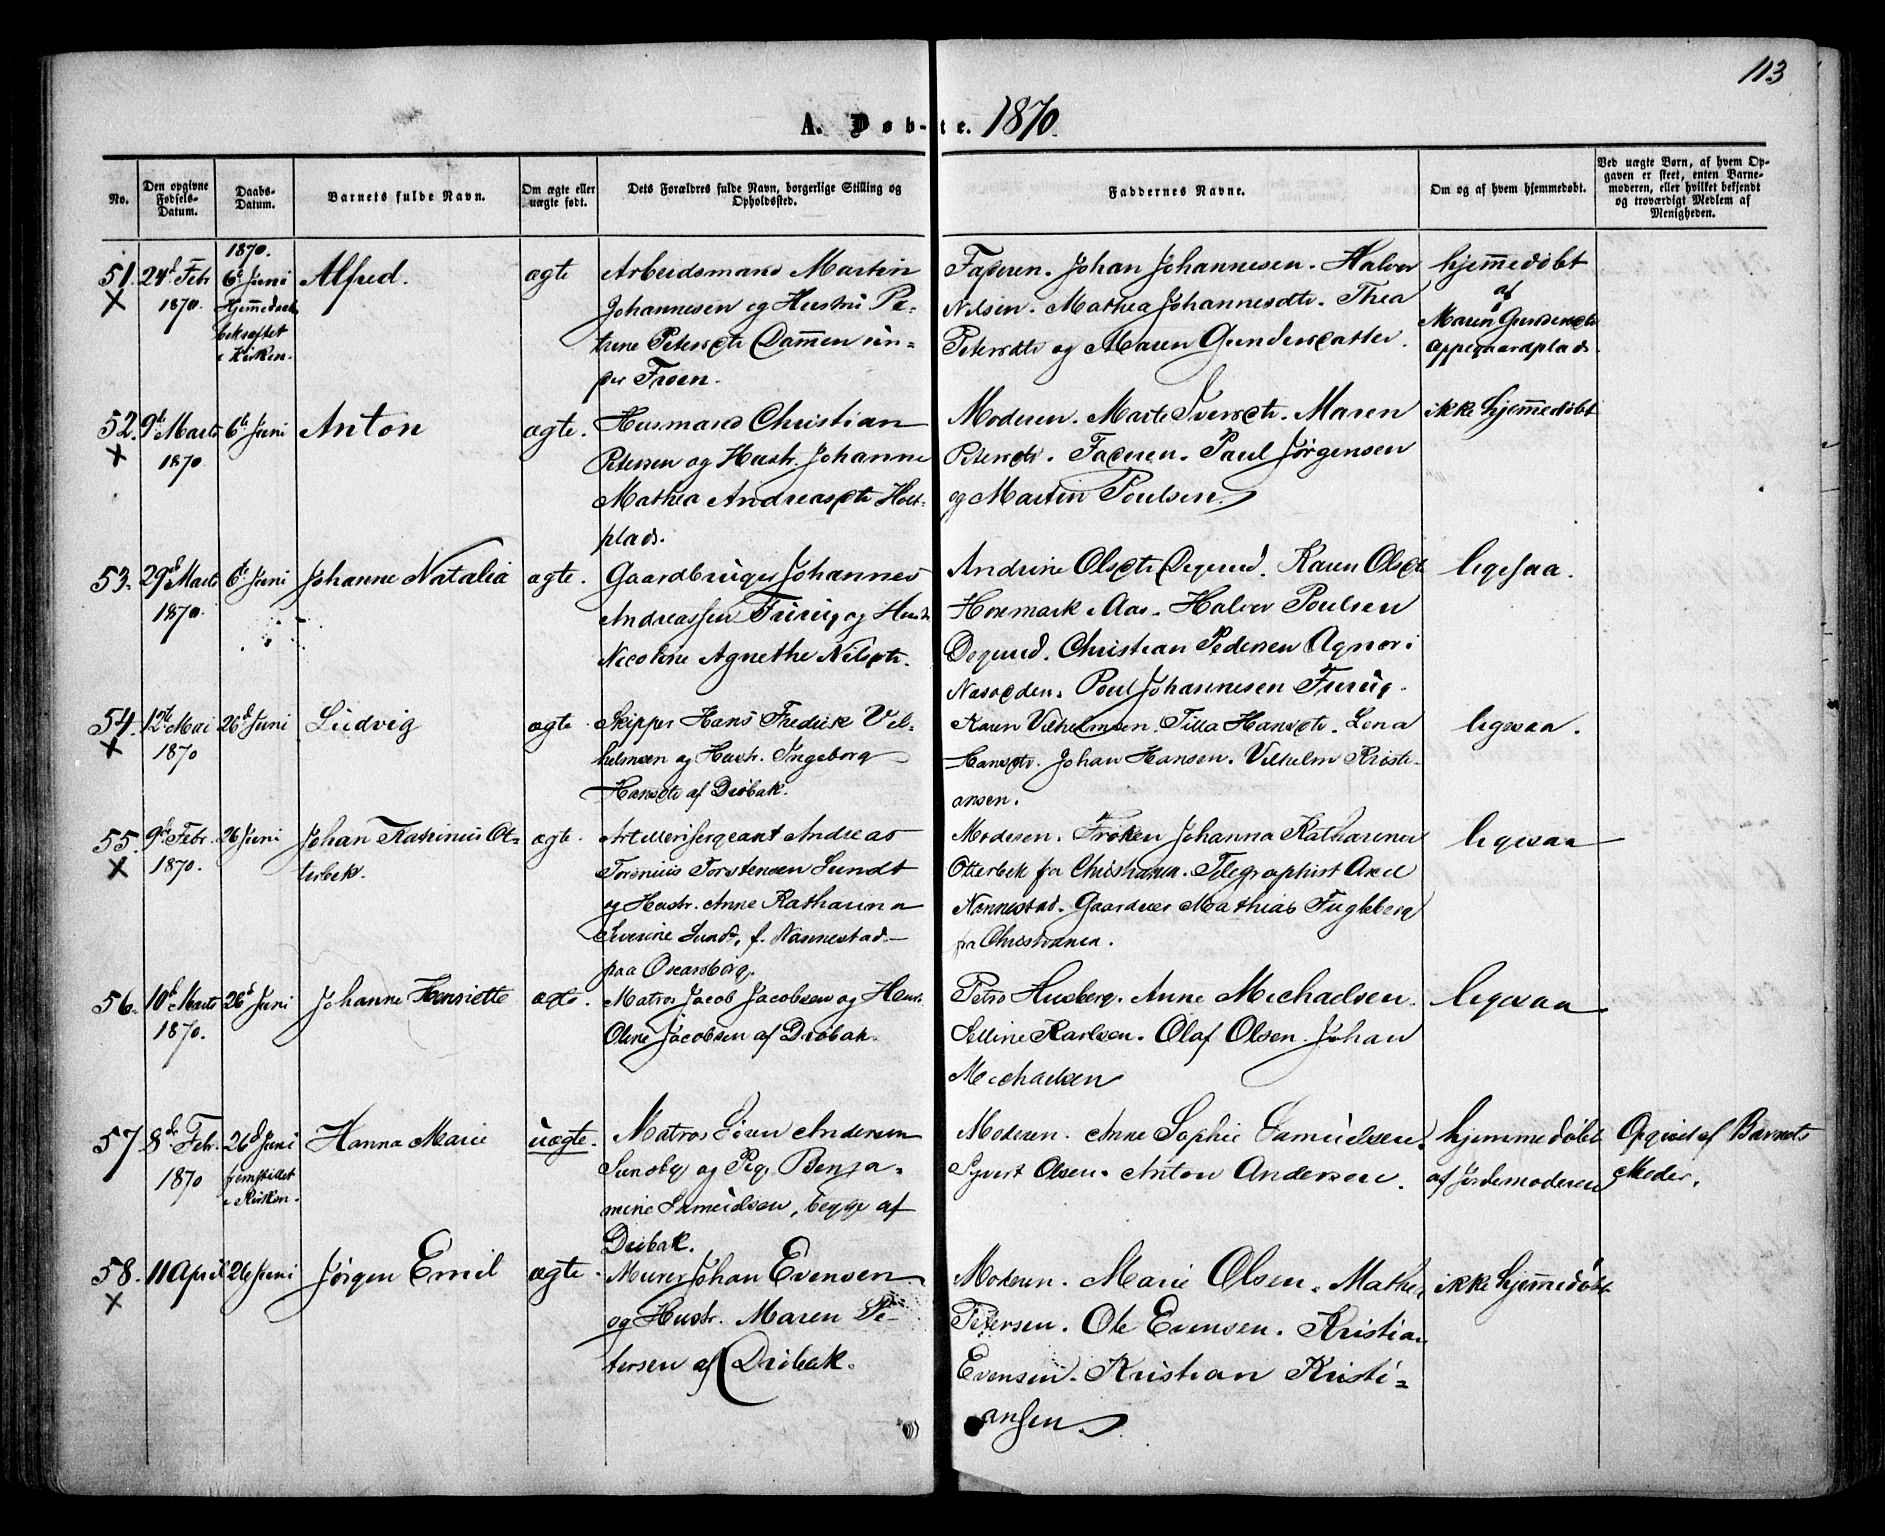 113
A. Døb-te. 1870.
No.
Den opgivne Fødsels-Datum.
Daabs-Datum.
Barnets fulde Navn.
Om ægte eller uægte født.
Dets Forældres fulde Navn, borgerlige Stilling og Opholdssted.
Faddernes Navne.
Om og af hvem hjemmedøbt.
Ved uægte Børn, af hvem Op-
gaven er skeet, enten Barne-
moderen, eller hvilket bekjendt
og troværdigt Medlem af
Menigheden.
51. 24d Febr 1870.
1870. 6te Juni
Hjemmedaab
bekræftet
i Kirken.
Alfred.
ægte
Arbeidsmand Martin
Johannesen og Hustru Pe-
trine Petersdtr Dammen un-
der Froen.
Faderen. Johan Johannesen. Halvor
Nilsen. Mathea Johannesdtr. Thea
Petersdtr og Maren Gundersdatter.
hjemmedøbt
af
Maren Gundersdtr
Oppegaardplads.
52. 9de Marts 1870
6te Juni
Anton
ægte.
Husmand Christian
Petersen og Hustr. Johanne
Mathea Andreasdtr Holt-
plads.
Moderen. Marte Iversdtr. Maren
Petersdtr. Faderen. Paul Jørgensen
og Martin Poulsen.
ikke hjemmedøbt
53. 29d Marts 1870.
6te Juni
Johanne Natalia
ægte.
Gaardbruger Johannes
Andreassen Furuy og Hustr
Nicoline Agnethe Nilsdtr.
Andrine Olsdtr Degrud. Karen Olsdtr
Hornmark i Aas. Halvor Poulsen
Degrud. Christian Pedersen Agnor i
Nasodden. Poul Johannesen Furuy.
ligesaa.
54. 12te Mai 1870
26d Juni
Ludvig
ægte
Skipper Hans Fredrik Vil-
helmsen og Hustr. Ingeborg
Hansdtr af Drøbak.
Karen Vilhelmsen. Tilla Hansdtr. Lena
Hansdtr. Johan Hansen. Vilhelm Kristi-
ansen.
ligesaa.
55. 9de Febr. 1870.
26 Juni
Johan Katrinius Ot-
terbek.
ægte.
Artillerisergeant Andreas
Torenius Torstensen Lundt
og Hustr. Anne Katharina
Severine Lundt, f. Nannestad
paa Oscarsborg.
Moderen. Frøken Johanna Katharina
Otterbek fra Christiania. Telegraphist Axel
Nannestad. Gaardeier Mathias Fugleberg
fra Christiania.
ligesaa
56. 10d Marts 1870.
26d Juni
Johanne Henriette
ægte.
Matros Jacob Jacobsen og Hustr.
Oline Jacobsen af Drøbak.
Petro Husberg. Anne Michaelsen.
Selline Karlsen. Olaf Olsen. Johan
Michaelsen
ligesaa
57 8de Febr. 1870
26d Juni
fremstillet
i Kirken.
Hanna Marie
uægte.
Matros Søren Andersen
Sundby og Pig. Benja-
mine Samuelsen, begge af
Drøbak.
Moderen. Anne Sophie Samuelsen.
Syvert Olsen. Anton Andersen.
hjemmedøbt
af Jordemoderen
Opgivet af Barnets
Moder.
58. 11 April
26 Juni
Jørgen Emil
ægte.
Murer Johan Evensen
og Hustr. Maren Pe-
tersen af Drøbak.
Moderen. Marie Olsen. Mathea
Petersen. Ole Evensen. Kristian
Evensen. Kristian Kristi-
ansen
ikke hjemmedøbt